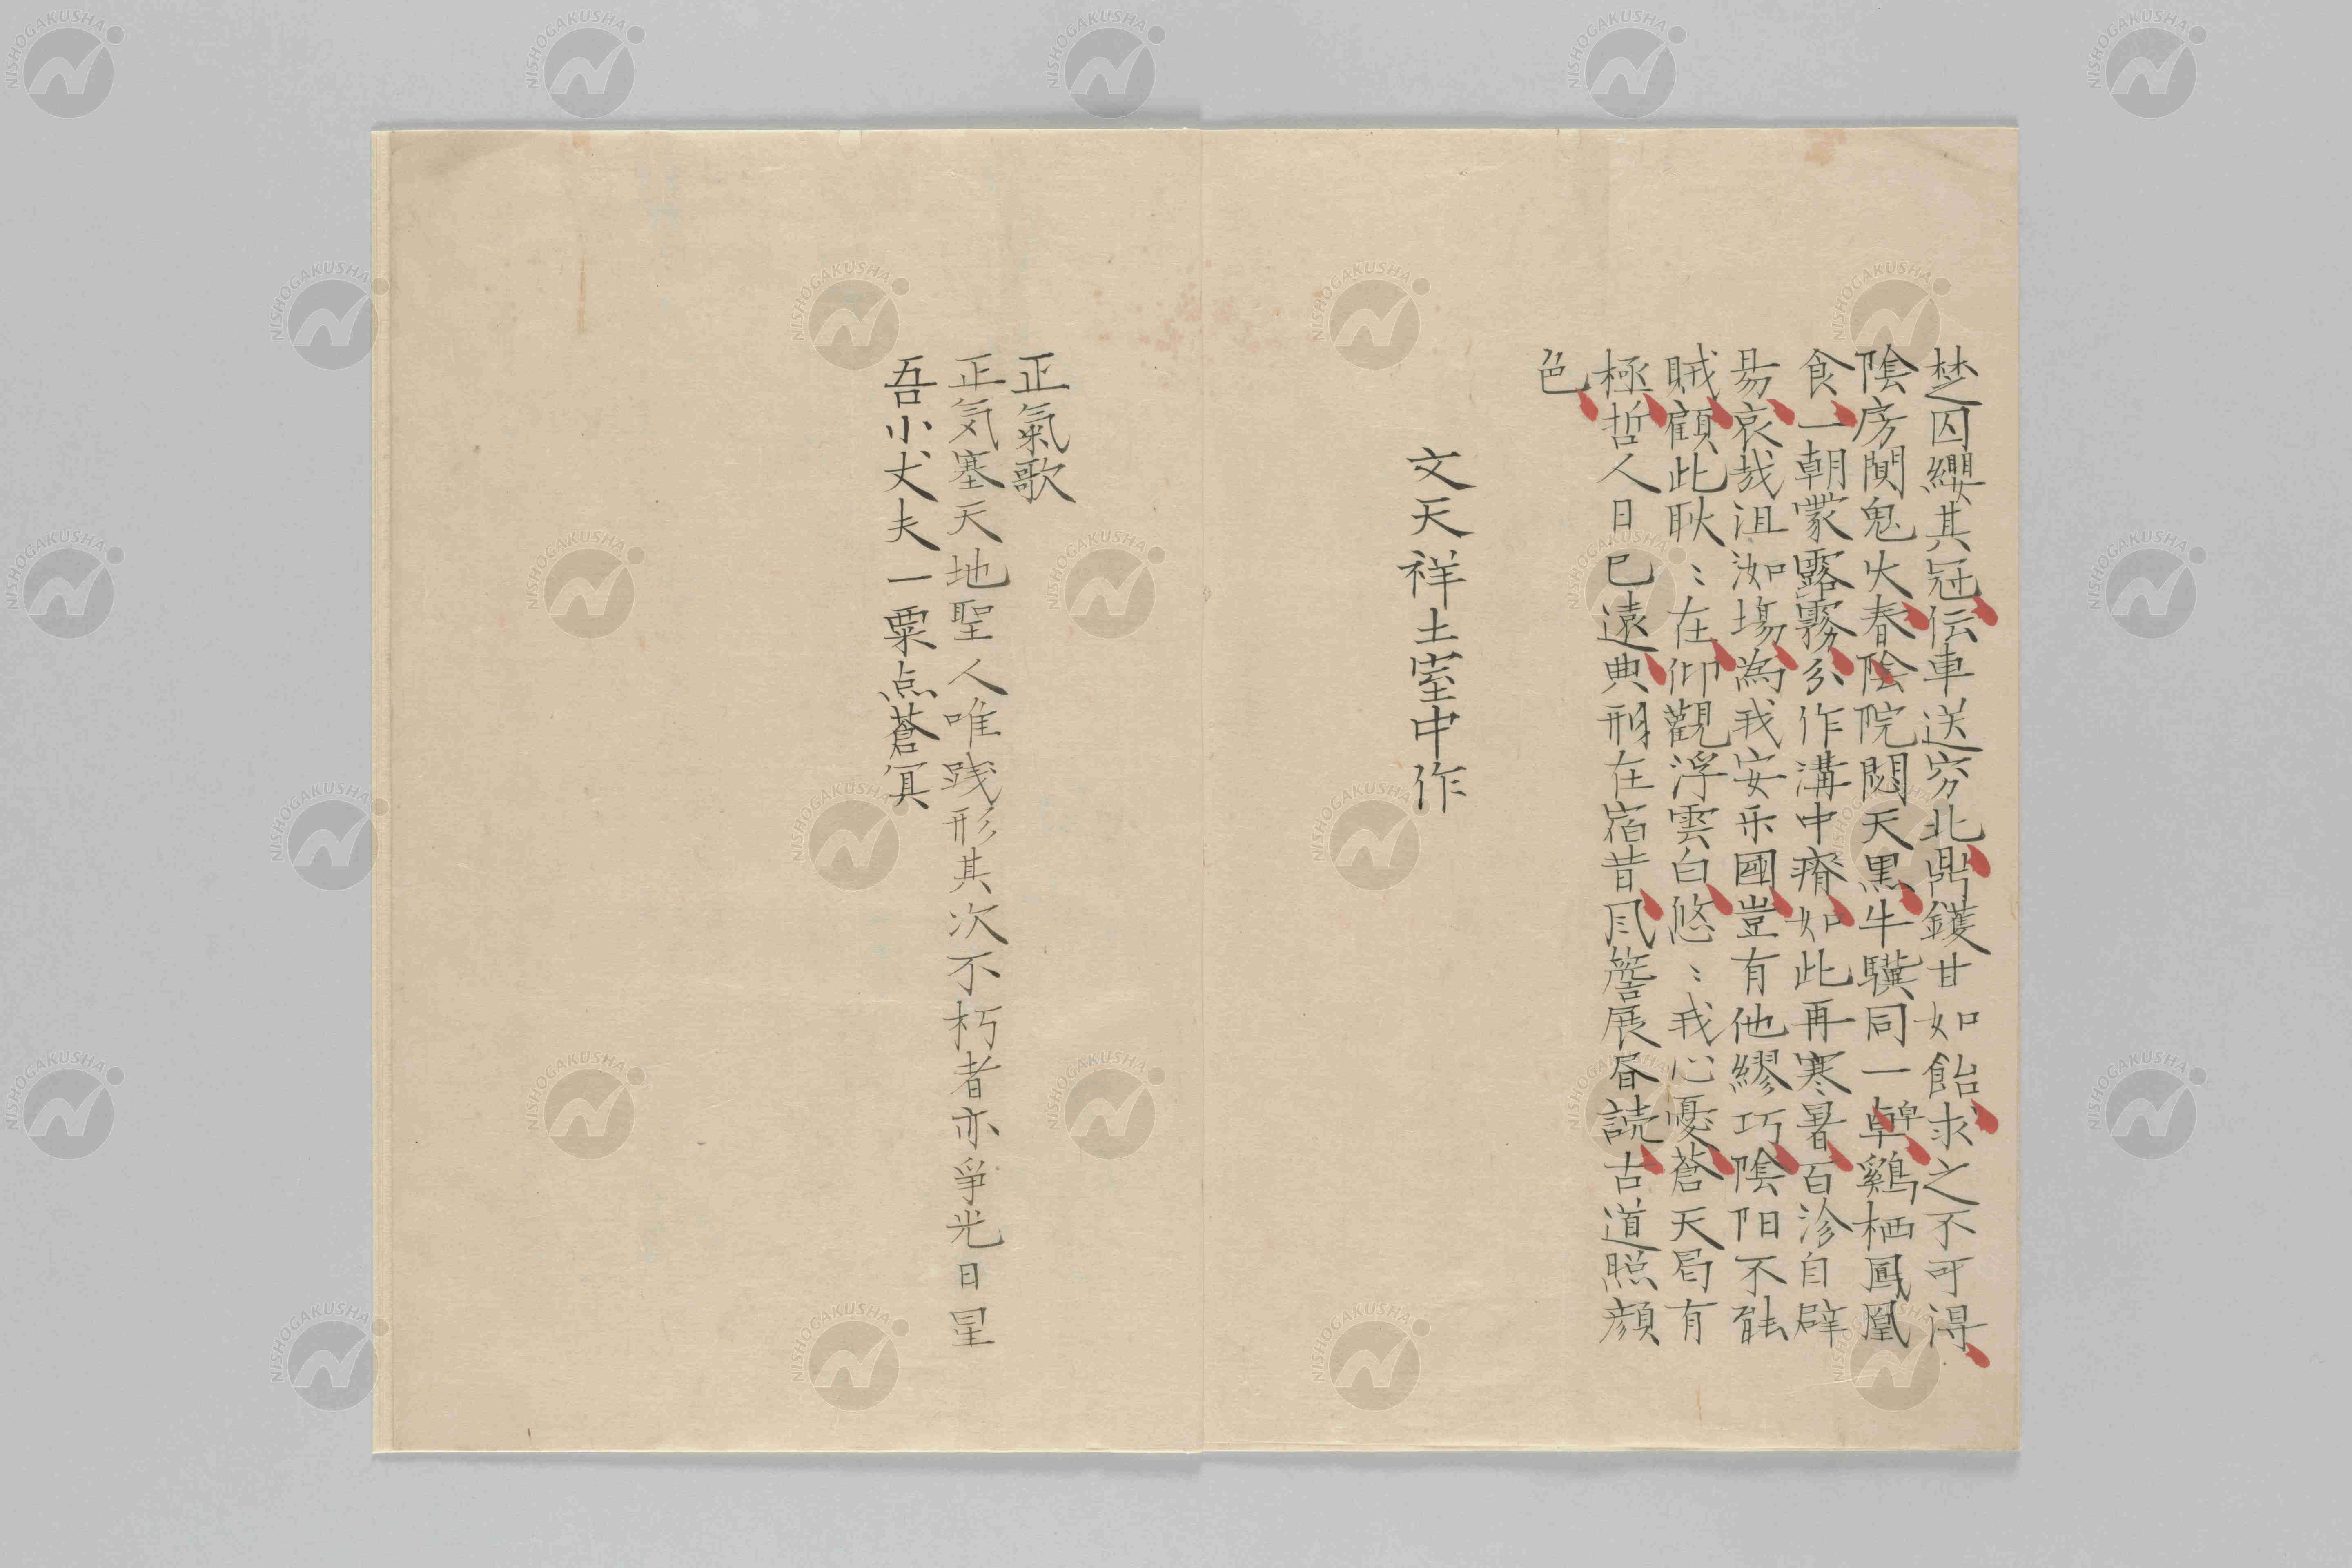 楚囚纓其冠伝車送穷北鼎鑊甘如飴求之不可得
陰房闃鬼火春陰院閟天黒牛驥同一皁鷄栖鳳凰
食一朝蒙露霧分作溝中瘠如此再寒暑百沴自辟
易哀哉沮洳場為我安楽國豈有他繆巧陰阳不能
賊顧此耿〻在仰観浮雲白悠〻我心憂蒼天曷有
極哲人日已遠典刑在宿昔風簷展昏読古道照顔
色
文天祥土室中作
正氣歌
正気塞天地聖人唯践形其次不朽者亦争光日星
吾小丈夫一粟点蒼冥
NISHOGAKUSHA